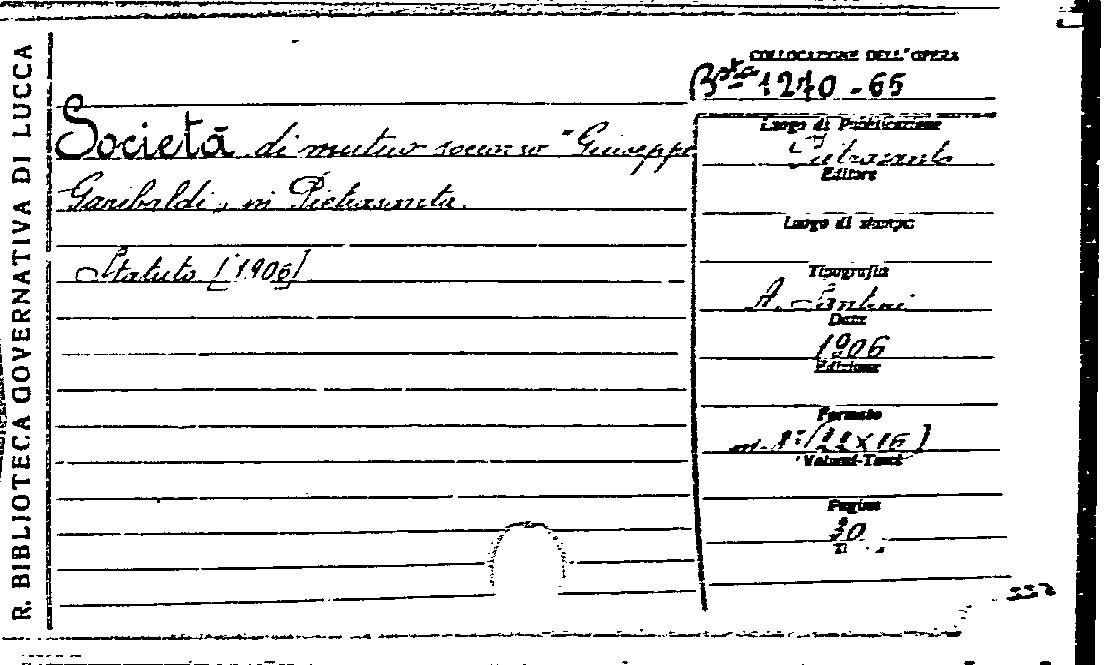 R. BIBLIOTECA GOVERNATIVA DI LUCCA
COLLOCAZIONE DELL'OPERA
Bta 1270-65
Società di mutuo soccorso "Giuseppe
Garibaldi, in Pietrasanta.
Statuto [1906]
Luogo di Pubblicazione
Pietrasanta
Editore
Luogo di stampa
Tipografia
A.
Data
1906
Edizione
Formato
(22×16)
Volumi-Tomi
Pagine
30